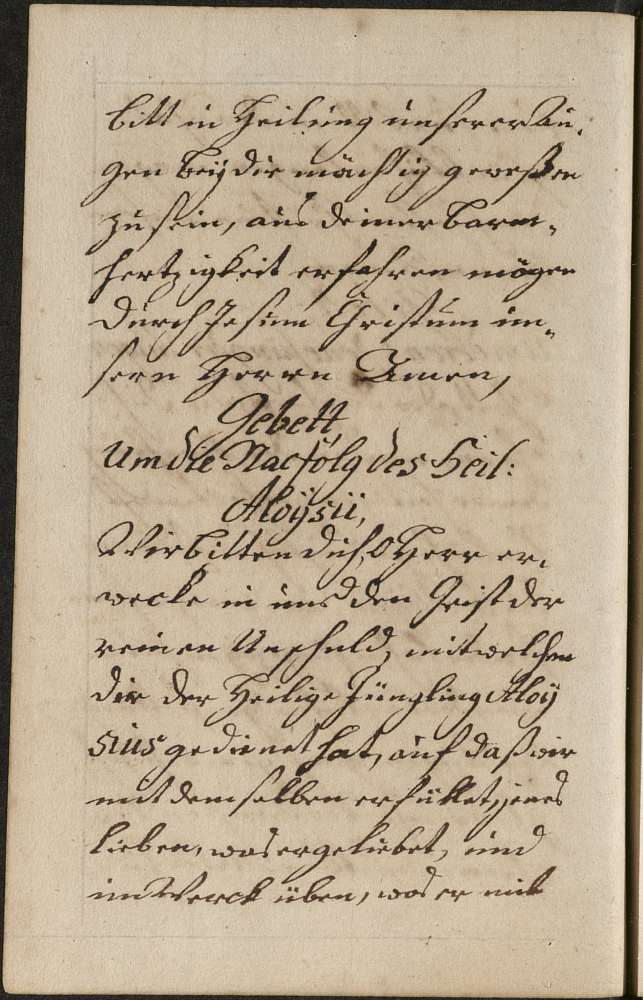 bitt in Heilung unserer Au„
gen beÿ dir mächtig geweßen
zu sein, aus deiner barm„
hertzigkeit erfahren mögen
durch Jesum Christum un„
sern Herren Amen,
Gebett
Um die Nacfolg des Heil:
Aloÿsii,
Wir bitten dich, O Herr er„
wecke in uns den Geist der
reinen Unschuld, mit welchem
dir der Heilige Jüngling Aloÿ
sius gedienet hat, auf daß wir
mit demselben erfüllet, jenes
lieben, was er geliebet, und
im Werck üben, was er mit